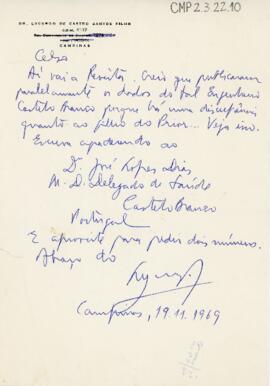 CMP 2.3.22.10
DR. LYCURGO DE CASTRO SANTOS FILHO
CAMPINAS
Celso
Aí vai a Revista. Creio que publicaram
parcialmente os dados do Engenheiro
Castelo Branco porque há uma discrepância
quanto ao filho do Prior... Veja isso.
Escreva agradecendo ao
Dr. José Lopes Dias
M. D. Delegado de Saúde
Castelo Branco
Portugal
E aproveite para pedir dois números.
Abraço do
Campinas, 19.11.1969